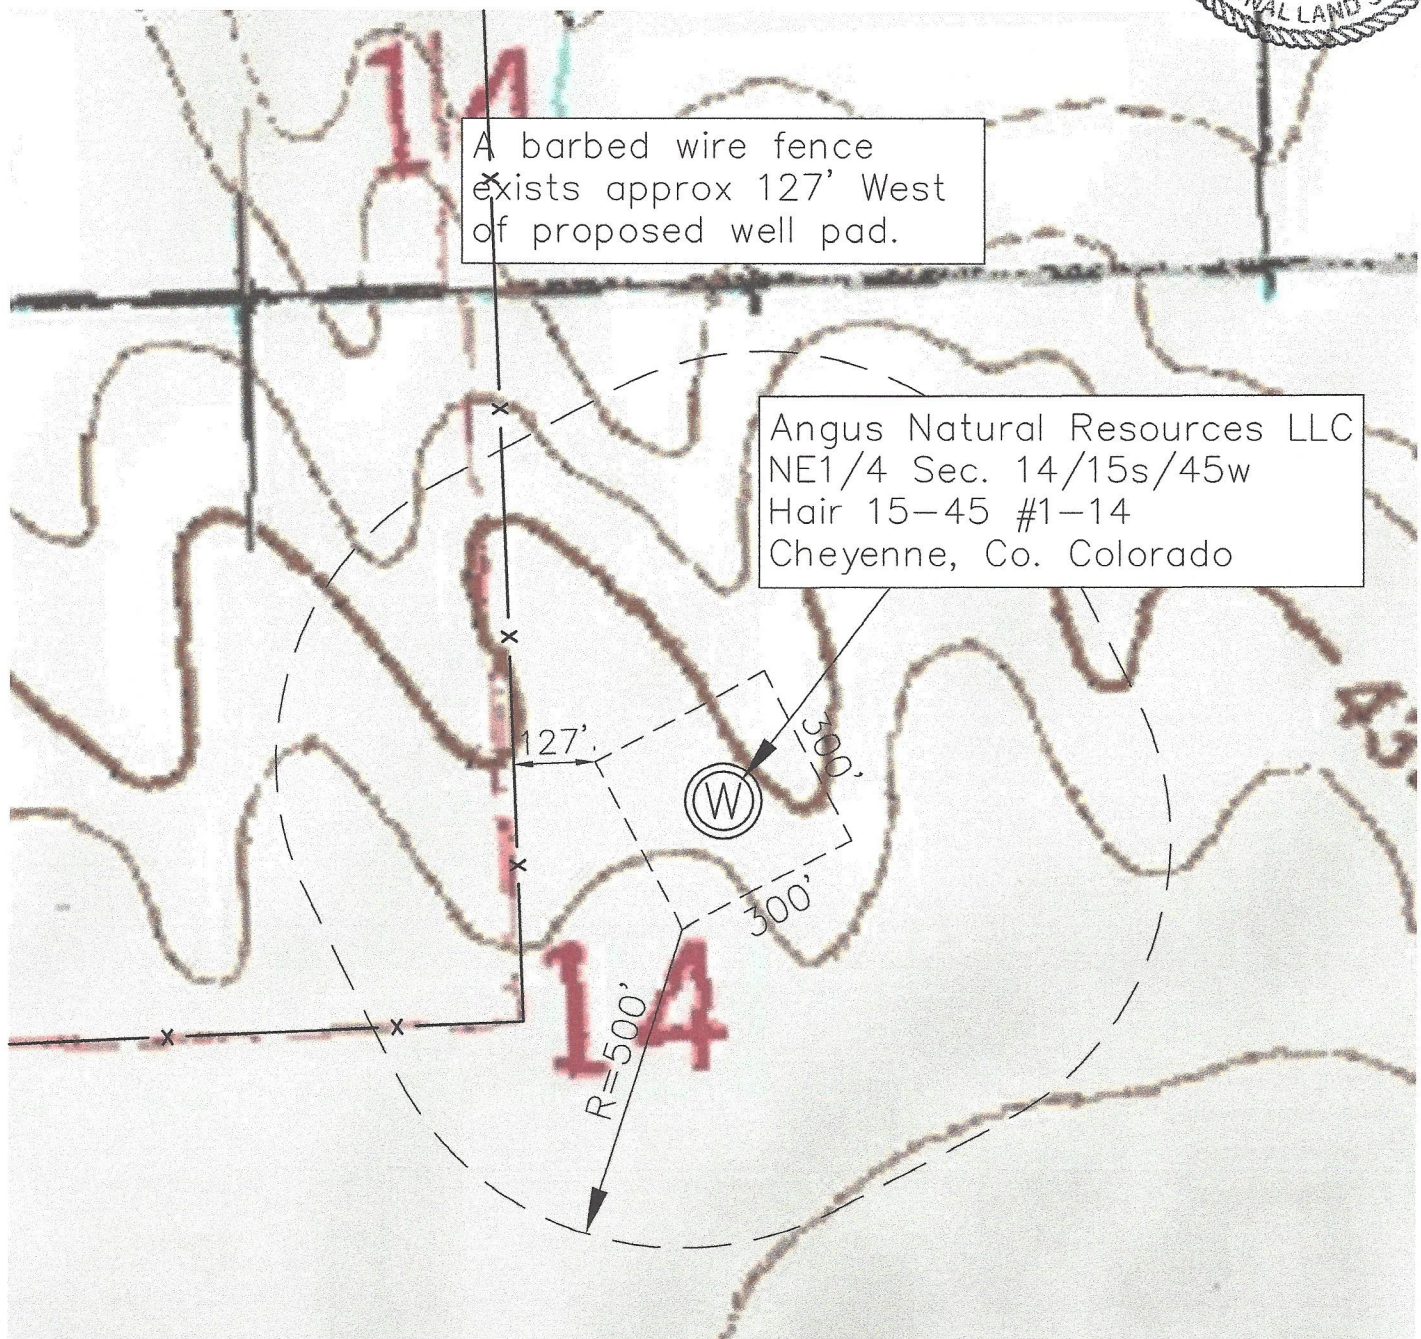 NAL LAND S
14
A barbed wire fence
exists approx 127' West
of proposed well pad.
Angus Natural Resources LLC
NE1/4 Sec. 14/15s/45w
Hair 15-45 #1-14
Cheyenne, Co. Colorado
127'
300'
W
300'
14
R=500'